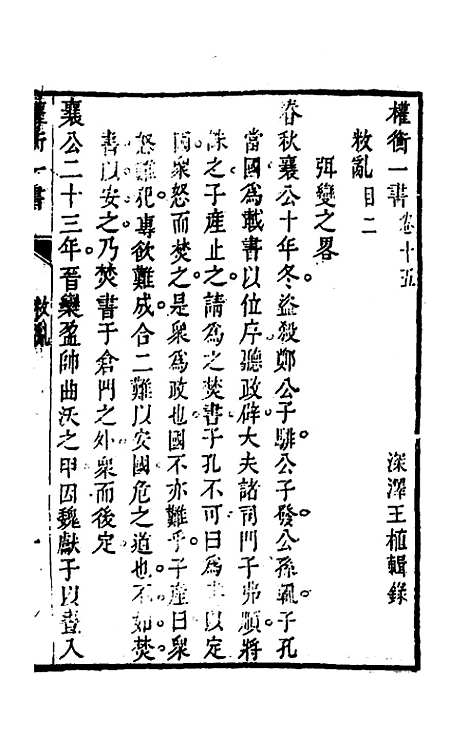 權衡一書卷十五
深澤王植輯錄
救亂目二
弭變之畧
春秋襄公十年冬盜殺鄭公子騑公子發公孫輒子孔
當國爲載書以位序聽政辟大夫諸司門子弗順將
誅之子產止之請爲之焚書子孔不可曰爲書以定
國衆怒而焚之是衆爲政也國不亦難乎子產曰衆
怒難犯專欲難成合二難以安國危之道也不如焚
書以安之乃焚書于倉門之外衆而後定
襄公二十三年晉欒盈帥曲沃之甲因魏獻子以晝入
權衡一書
救亂
一